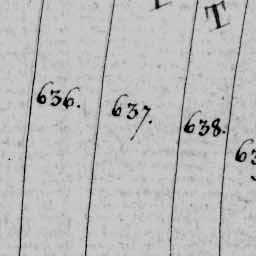 T
636. 637. 638.